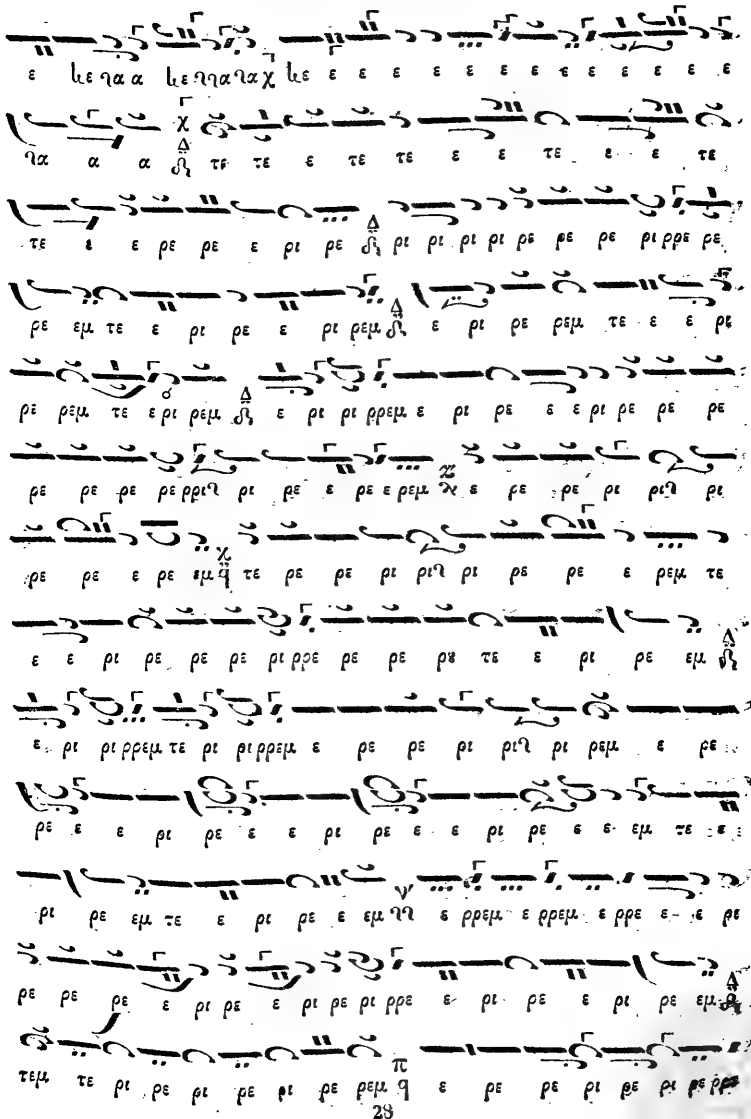 ε κε χα α κε χχα χα χ κε ε ε ε ε ε ε ε ε τε ε ε ε ε ε ε
χα α α χ Δ τε τε ε τε τε ε ε τε ε ε τε
τε ε ε ρε ρε ε ρι ρε Δ ρι ρι ρι ρι ρε ρε ρε ρι ρρε ρε
ρε εμ τε ε ρι ρε ε ρι ρεμ Δ ε ρι ρε ρεμ τε ε ε ρι
ρε ρεμ τε ε ρι ρεμ Δ ε ρι ρι ρρεμ ε ρι ρε ε ε ρι ρε ρε ρε
ρε ρε ρε ρε ρριχ ρι ρε ε ρε ε ρεμ ε ρε ρε ρι ριχ ρι
ρε ρε ε ρε εμ χ q τε ρε ρε ρι ριχ ρι ρε ρε ε ρεμ τε
ε ε ρι ρε ρε ρε ρι ρρε ρε ρε ρȣ τε ε ρι ρε εμ Δ
ε ρι ρι ρρεμ τε ρι ρι ρρεμ ε ρε ρε ρι ριχ ρι ρεμ ε ρε
ρε ε ε ρι ρε ε ε ρι ρε ε ε ρι ρε ε ε εμ τε ε
ρι ρε εμ τε ε ρι ρε ε εμ ν' ε ρρεμ ε ρρεμ ε ρρε ε ε ρι
ρε ρε ρε ε ρι ρε ε ρι ρε ρι ρρε ε ρι ρε ε ρι ρε εμ Δ
τεμ τε ρι ρε ρι ρε ρι ρε ρεμ π q ε ρε ρε ρι ρε ρι ρε ρρε
28